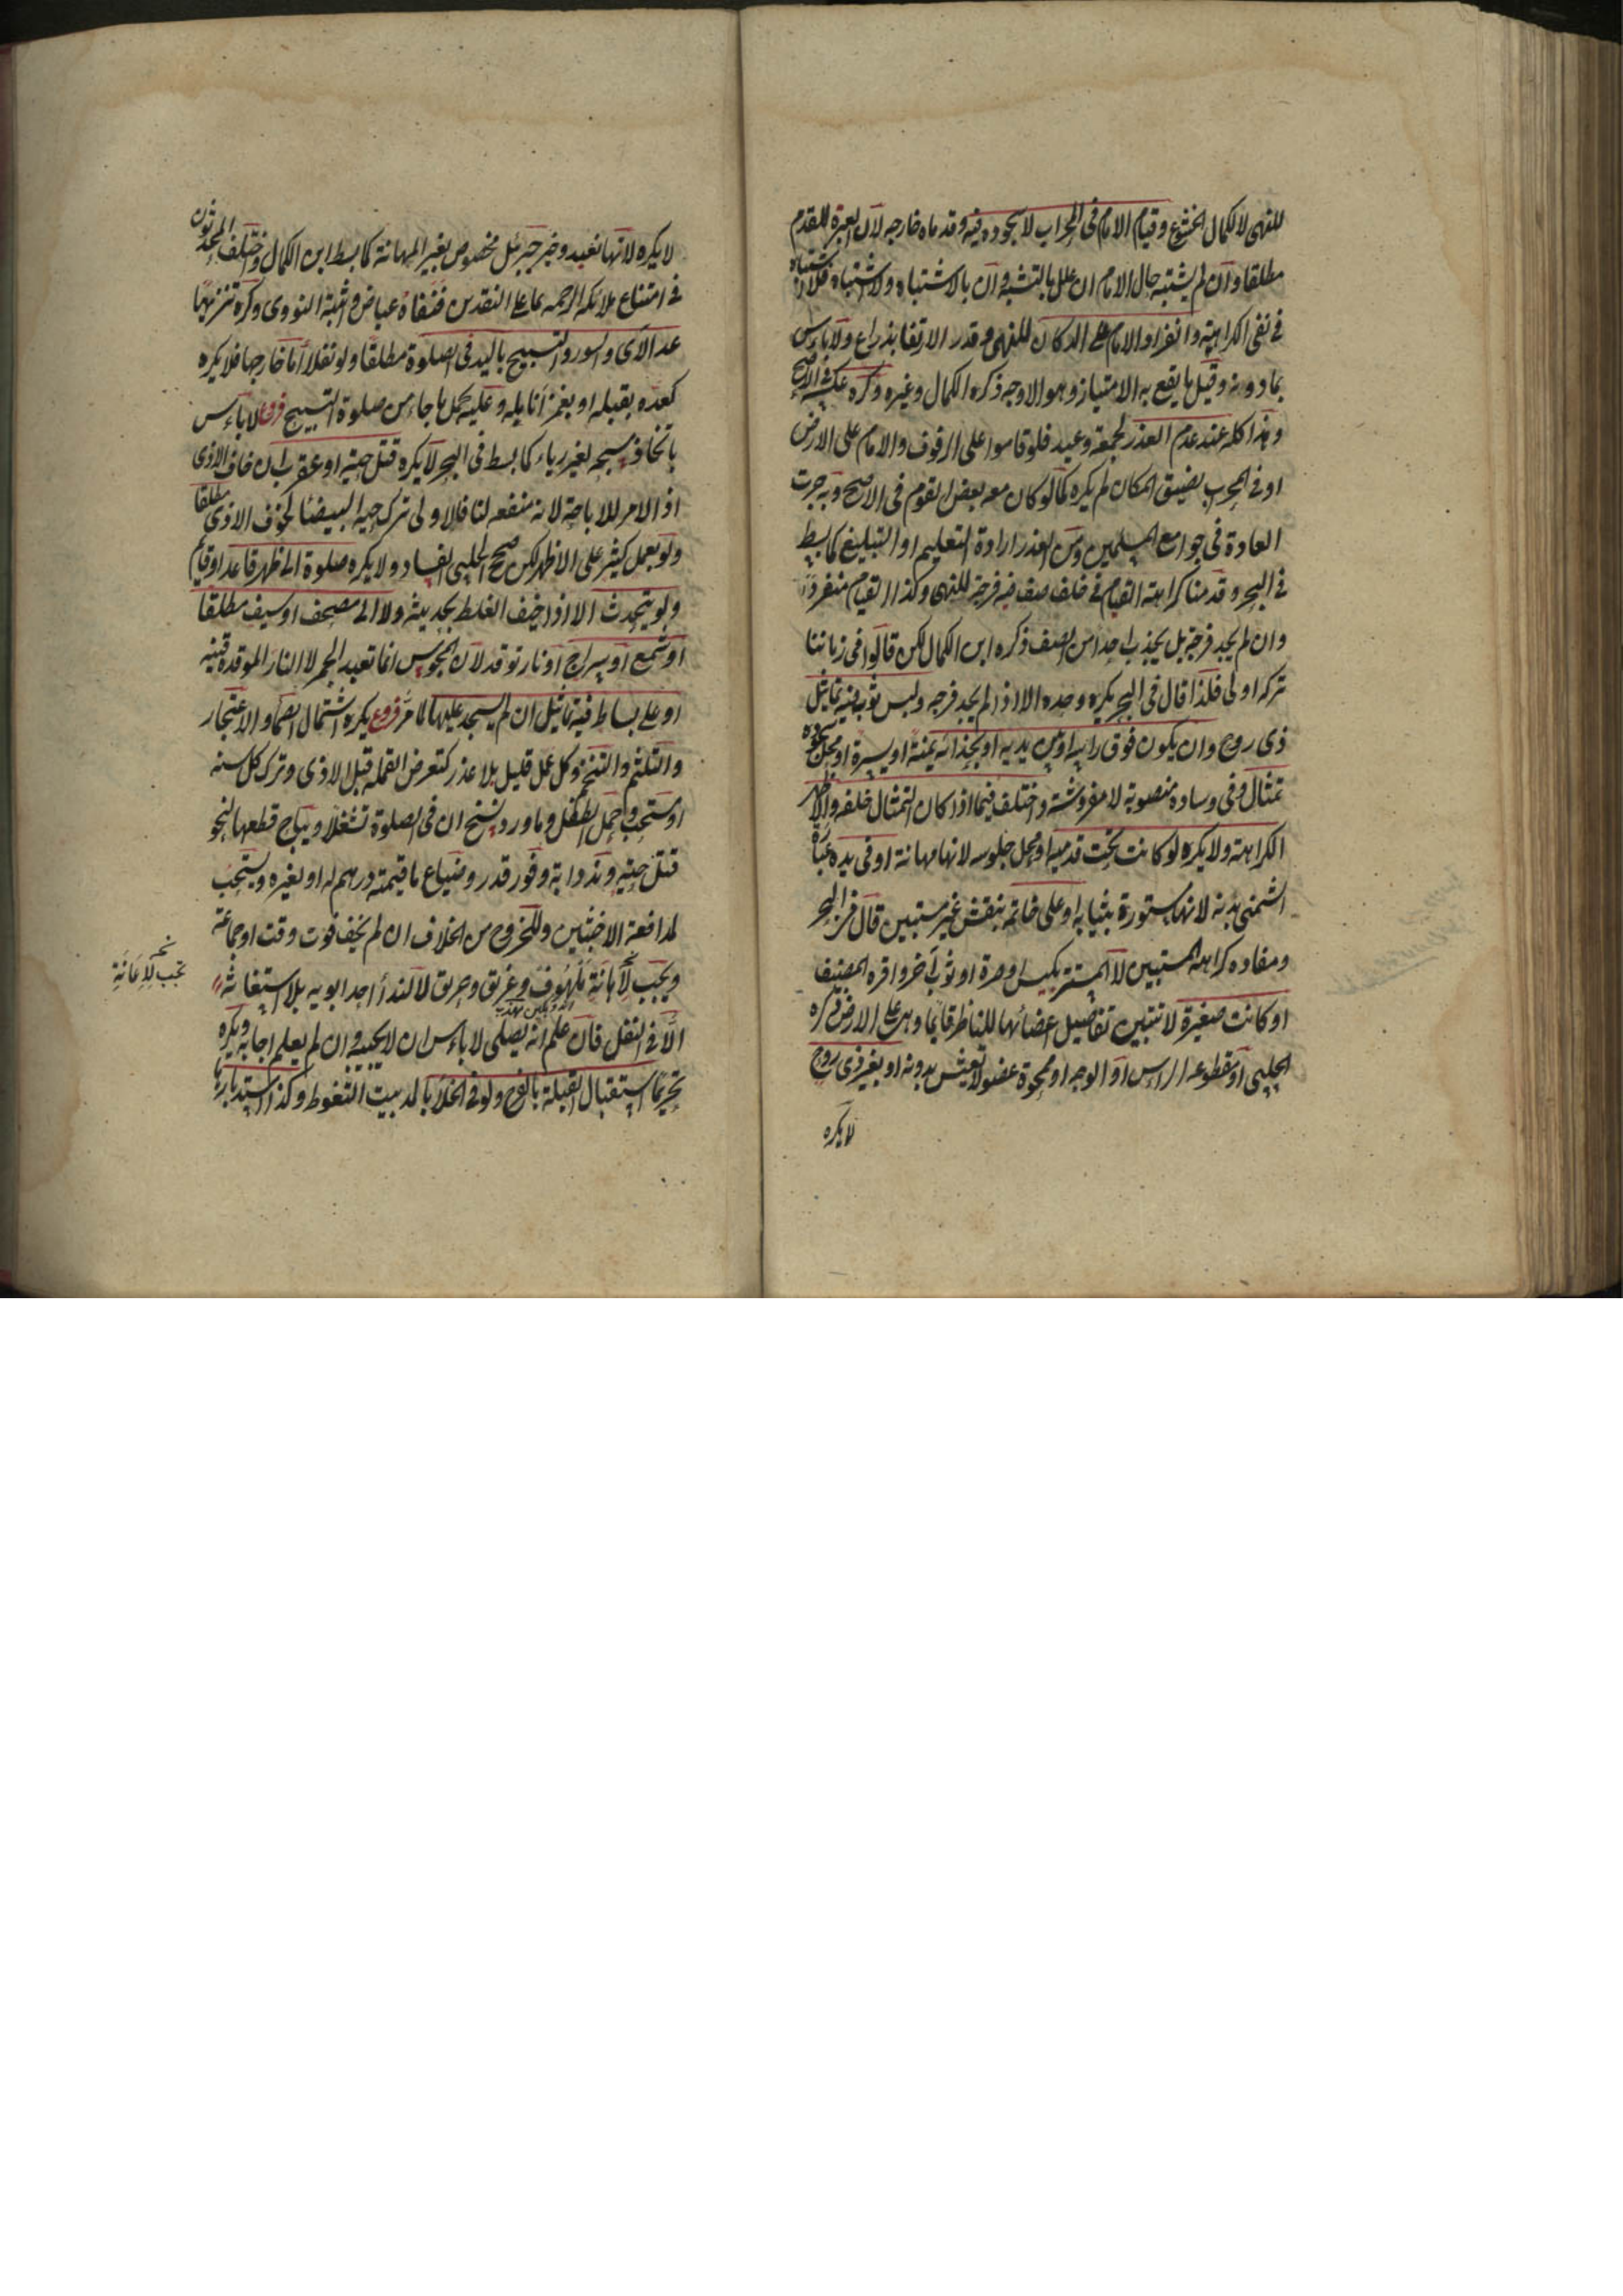 للنهى لا لكمال الخشوع وقيام الامام فى المحراب لا سجوده فيه وقدماه خارجه لان العبرة للقدم
مطلقا وان لم يشتبه حال الامام ان علل بالتشبه وان بالاشتباه ولا اشتباه فلا اشتباه
فى نفى الكراهية وانفراد الامام على الدكان للنهى وقدر الارتفاع بذراع ولا باءس
بما دونه وقيل ما يقع به الامتياز وهو الاوجه ذكره الكمال وغيره وكره عكسه فى الاصح
وهذا كله عند عدم العذر كجمعة وعيد فلو قاموا على الرفوف والامام على الارض
او فى المحراب لضيق المكان لم يكره كما لو كان معه بعض القوم فى الاصح وبه جرت
العادة فى جوامع المسلمين ومن العذر ارادة التعليم او التبليغ كما بسط
فى البحر وقدمنا كراهة القيام فى خلف صف فيه فرجة للنهى وكذا القيام منفردا
وان لم يجد فرجة بل يجذب احدا من الصف ذكره ابن الكمال لكن قالوا فى زماننا
تركه اولى فلذا قال فى البحر يكره وحده الا اذا لم يجد فرجه ولبس ثوب فيه تماثيل
ذى روح وان يكون فوق راسه او بين يديه او بحذائه يمنة او يسرة او محل سجوده
تمثال وفى وساده منصوبة لا مفروشة واختلف فيما اذا كان التمثال خلفه والاظهر
الكراهة ولا يكره لو كانت تحت قدميه او محل جلوسه لانها مهانة او فى يده عبارة
الشمنى بدنه لانها مستورة بثيابه او على خاتمه بنقش غير مستبين قال فى البحر
ومفاده كراهة المستبين لا المستتر بكيس او صرة او ثوب آخر واقره المصنف
او كانت صغيرة لا تتبين تفاصيل اعضائها للناظر قائما وهى على الارض ذكره
الحلبى او مقطوعه الراس او الوجه او ممحوة عضو لا تعيش بدونه او بغير ذى روح
لا يكره
لا يكره لانها لا تعبد وخبر جبرئل مخصوص بغير المهانة كما بسط ابن الكمال واختلف المحدثون
فى امتناع ملائكه الرحمه بما على النقدين فنفاه عياض واثبته النووى وكره تنزيها
عد الآى والسور والتسبيح باليد فى الصلوة مطلقا ولو نفلا اما خارجها فلا يكره
كعده بقلبه او بغمز انامله وعليه يحمل ما جاء من صلوة التسبيح فرع لا باءس
باتخاذ سبحه لغير رياء كما بسط فى البحر لا يكره قتل حية او عقرب ان خاف الاذى
اذ الامر للاباحة لانه منفعه لنا فالاولى ترك حية البيضا لخوف الاذى مطلقا
ولو بعمل كثير على الاظهر لكن صحح الحلبى الفساد ولا يكره صلوة الى ظهر قاعد او قائم
ولو يتحدث الا اذا خيف الغلط بحديثه ولا الى مصحف او سيف مطلقا
او شمع او سراج او نار توقد لان المجوس انما تعبد الجمر لا النار الموقدة قنيه
او على بساط فيه تماثيل ان لم يسجد عليها لما مر فروع يكره اشتمال الصماء والاعتجار
والتلثم والتنخم وكل عمل قليل بلا عذر كتعرض القمله قبل الاذى وترك كل سنه
او مستحب وحمل الطفل وما ورد نسخ ان فى الصلوة شغلا ويباح قطعها لنحو
قتل حية وند دابة وفور قدر وضياع ما قيمته درهم له او لغيره ويستحب
لمدافعة الاخبثين وللخروج من الخلاف ان لم يخف فوت وقت او جماعة
ويجب لاغاثة ملهوف وغريق وحريق لا لنداء احد ابويه بلا استغاثة
الا فى النفل فان علم انه يصلى لا باءس ان لا يجيبه وان لم يعلم اجابه ويكره
تحريما استقبال القبلة بالفرج ولو فى الخلا بالمد بيت التغوط وكذا استدبارها
تجب لاغاثة